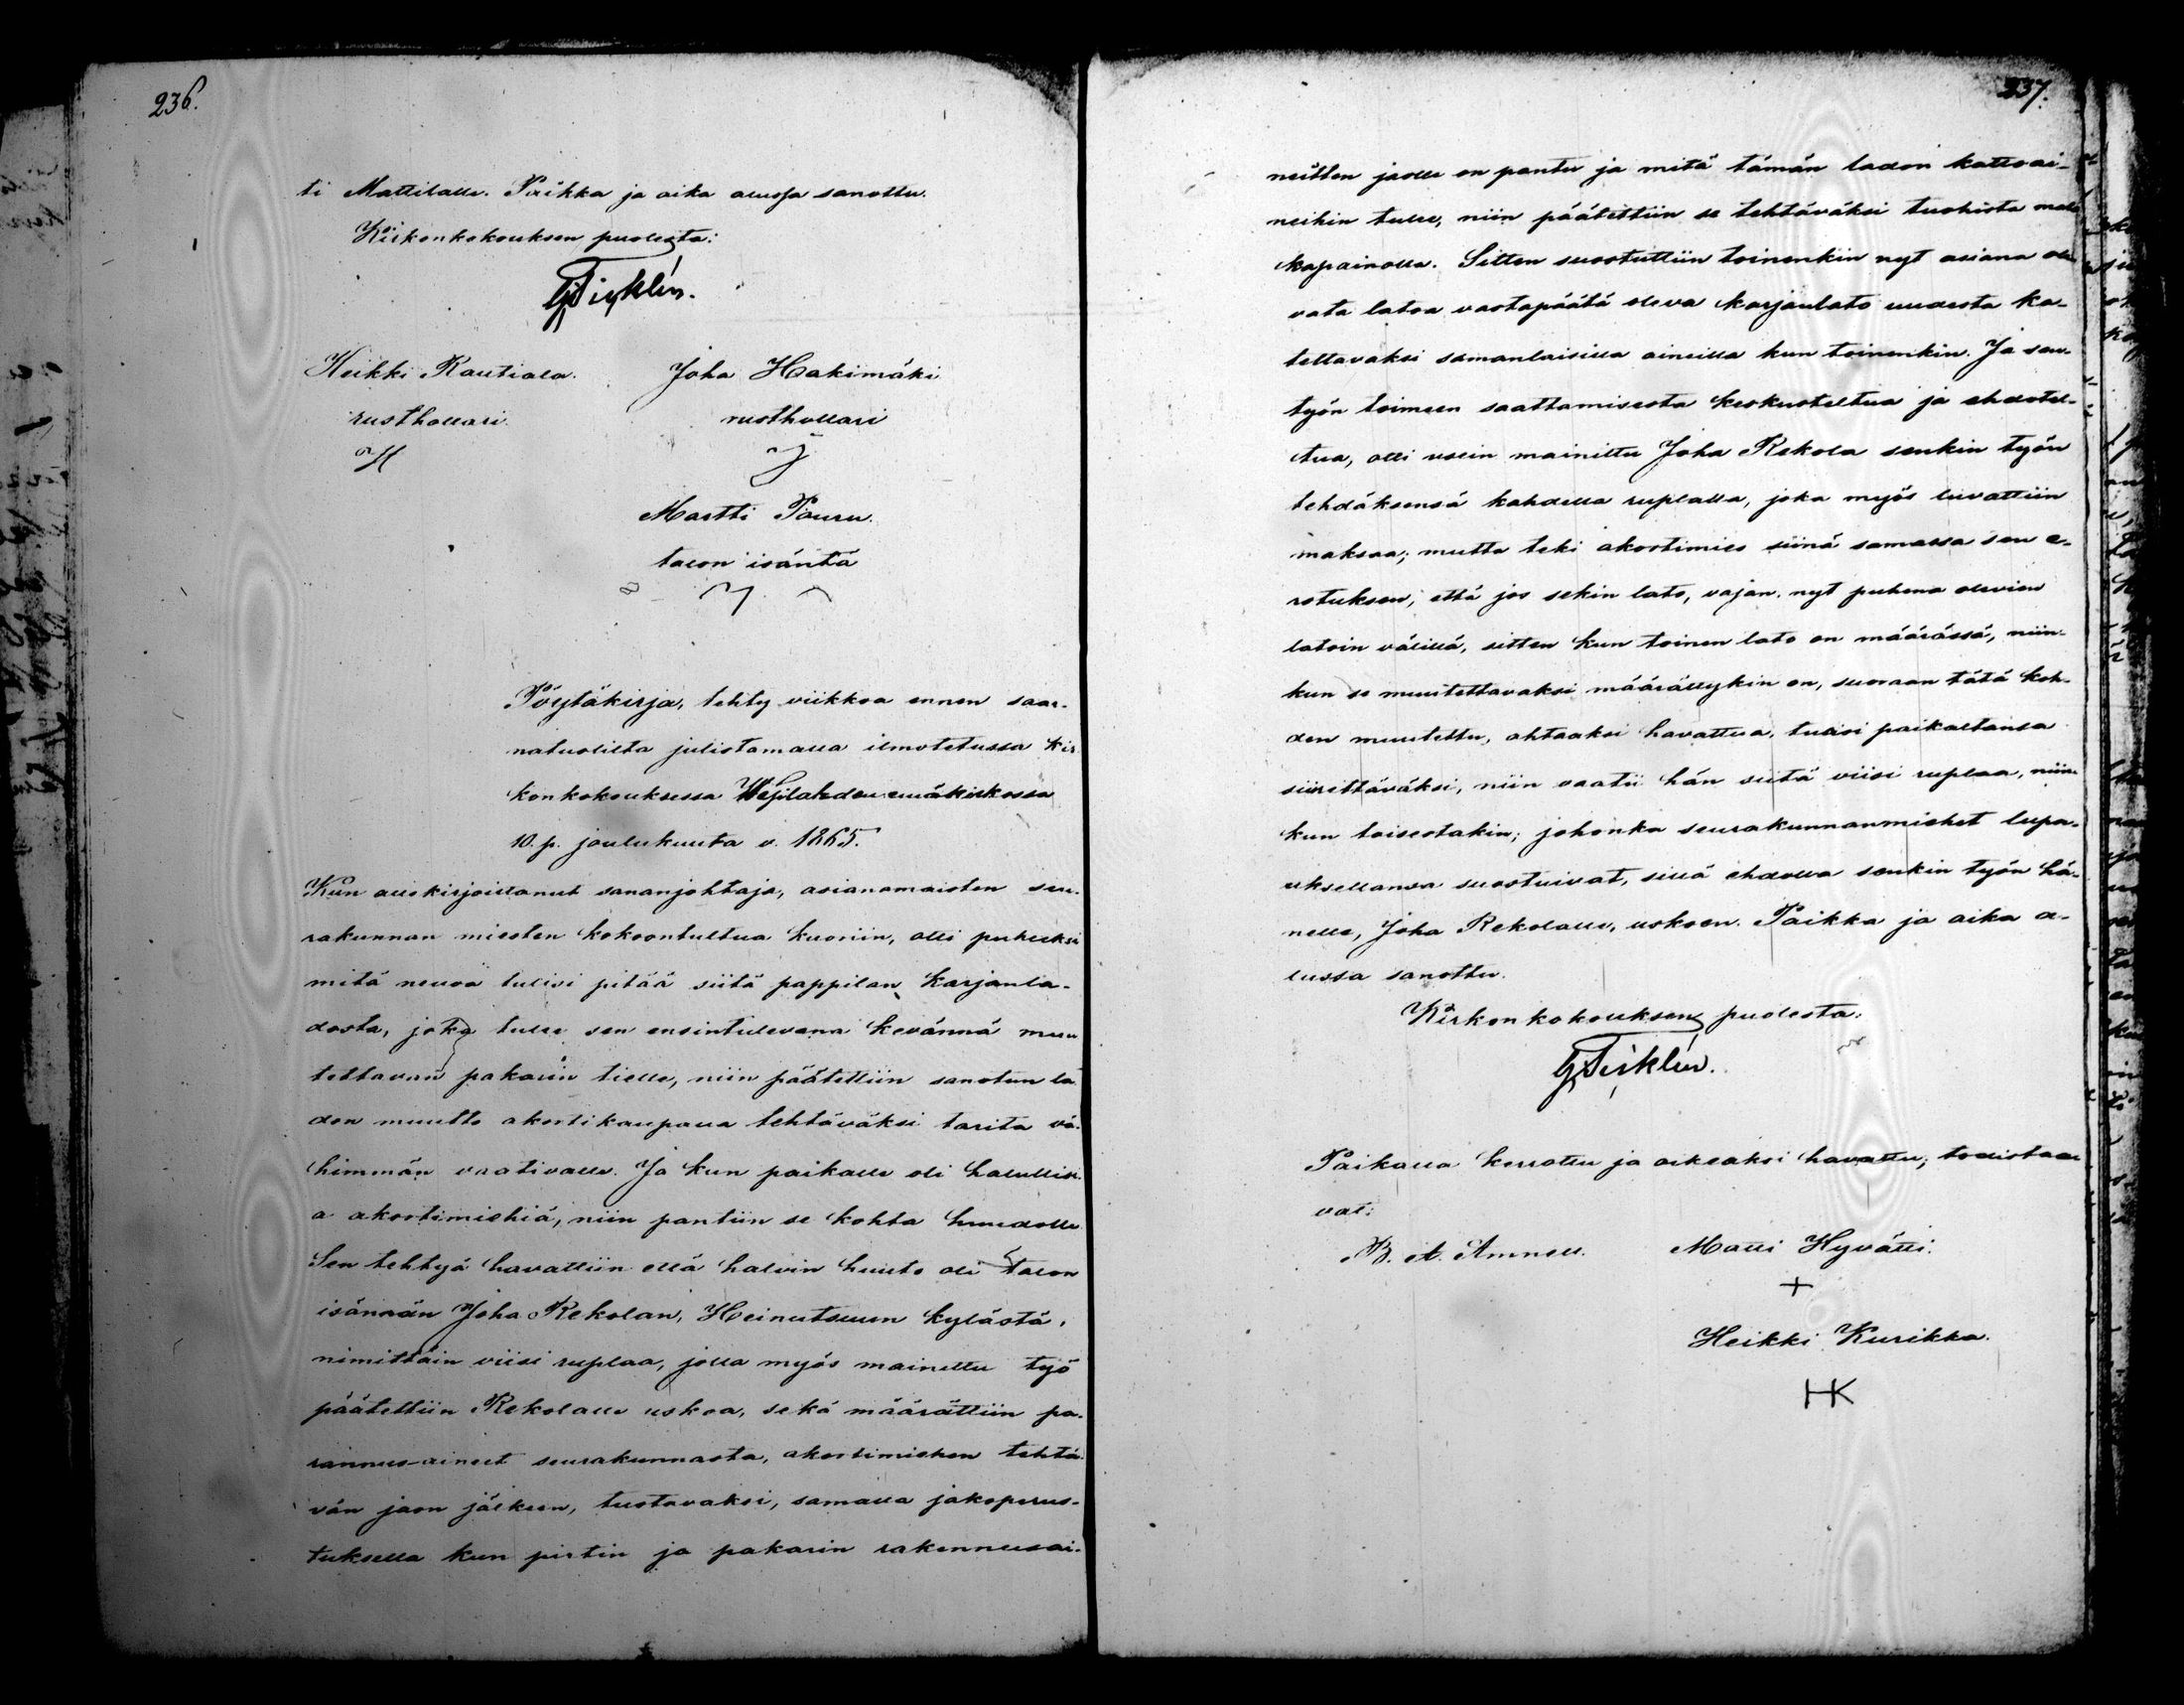 236.
ti Mattilalle. Paikka ja aika alussa sanottu.
Kirkonkokouksen puolesta:
Heikki Rautiala. Joha Hakimäki
rusthollari. rusthollari
H J
Martti Pouru.
talon isäntä
M
Pöytäkirja, tehty viikkoa ennen saar-
natuolilta julistamalla ilmotetussa kir
konkokouksessa Wesilahden emäkirkossa
10. p. joulukuuta v. 1865.
Kun allekirjoittanut sananjohtaja, asianomaisten seu-
rakunnan miesten kokoontultua kuoriin, otti puheeksi
mitä neuvoa tulisi pitää siitä pappilan karjanla-
dosta, joka tulee sen ensintulevana kevännä muu
tettavan pakarin tielle, niin päätettiin sanotun la
don muutto akortikaupalla tehtäväksi tarita vä-
himmän vaativalle. Ja kun paikalle oli halullisi-
a akortimiehiä, niin pantiin se kohta huudolle
Sen tehtyä havattiin että halvin huuto oli talon
isännän Joha Rekolan, Heinutsuun kylästä,
nimittäin viisi ruplaa, jolla myös mainittu työ
päätettiin Rekolalle uskoa, sekä määrättiin pa-
rannus-aineet seurakunnasta, akortimiehen tehtä-
vän jaon jälkeen, tuotavaksi, samalla jakoperus-
tuksella kun pirtin ja pakarin rakennusai-
237.
neitten jaolle on pantu ja mitä tämän ladon kattoai-
neihin tulee, niin päätettiin se tehtäväksi tuohista
kapainolla. Sitten suostuttiin toinenkin nyt asiana ole
vata latoa vastapäätä oleva karjanlato uudesta ka-
tettavaksi samanlaisilla aineilla kun toinenkin. Ja sen
työn toimeen saattamisesta keskusteltua ja ehdotel-
tua, otti usein mainittu Joha Rekola senkin työn
tehdäksensä kahdella ruplalla, joka myös luvattiin
maksaa; mutta teki akortimies siinä samassa sen e-
rotuksen, että jos sekin lato, vajan, nyt puhena olevien
latoin välillä, sitten kun toinen lato on määrässä, niin-
kun se muutettavaksi määrättykin on, suoraan tätä koh-
den muutettu, ahtaaksi havattua, tulisi paikaltansa
siirettäväksi, niin vaatii hän siitä viisi ruplaa, niin-
kun toisestakin; johonka seurakunnanmiehet lupa-
uksellansa suostuivat, sillä ehdolla senkin työn hä-
nelle, Joha Rekolalle, uskoen. Paikka ja aika a-
lussa sanottu.
Kirkonkokouksen puolesta:
Paikalla kerrottu ja oikeaksi havattu, todistaa
vat:
B. A. Amnell. Matti Hyvätti.
+
Heikki Kurikka.
HK